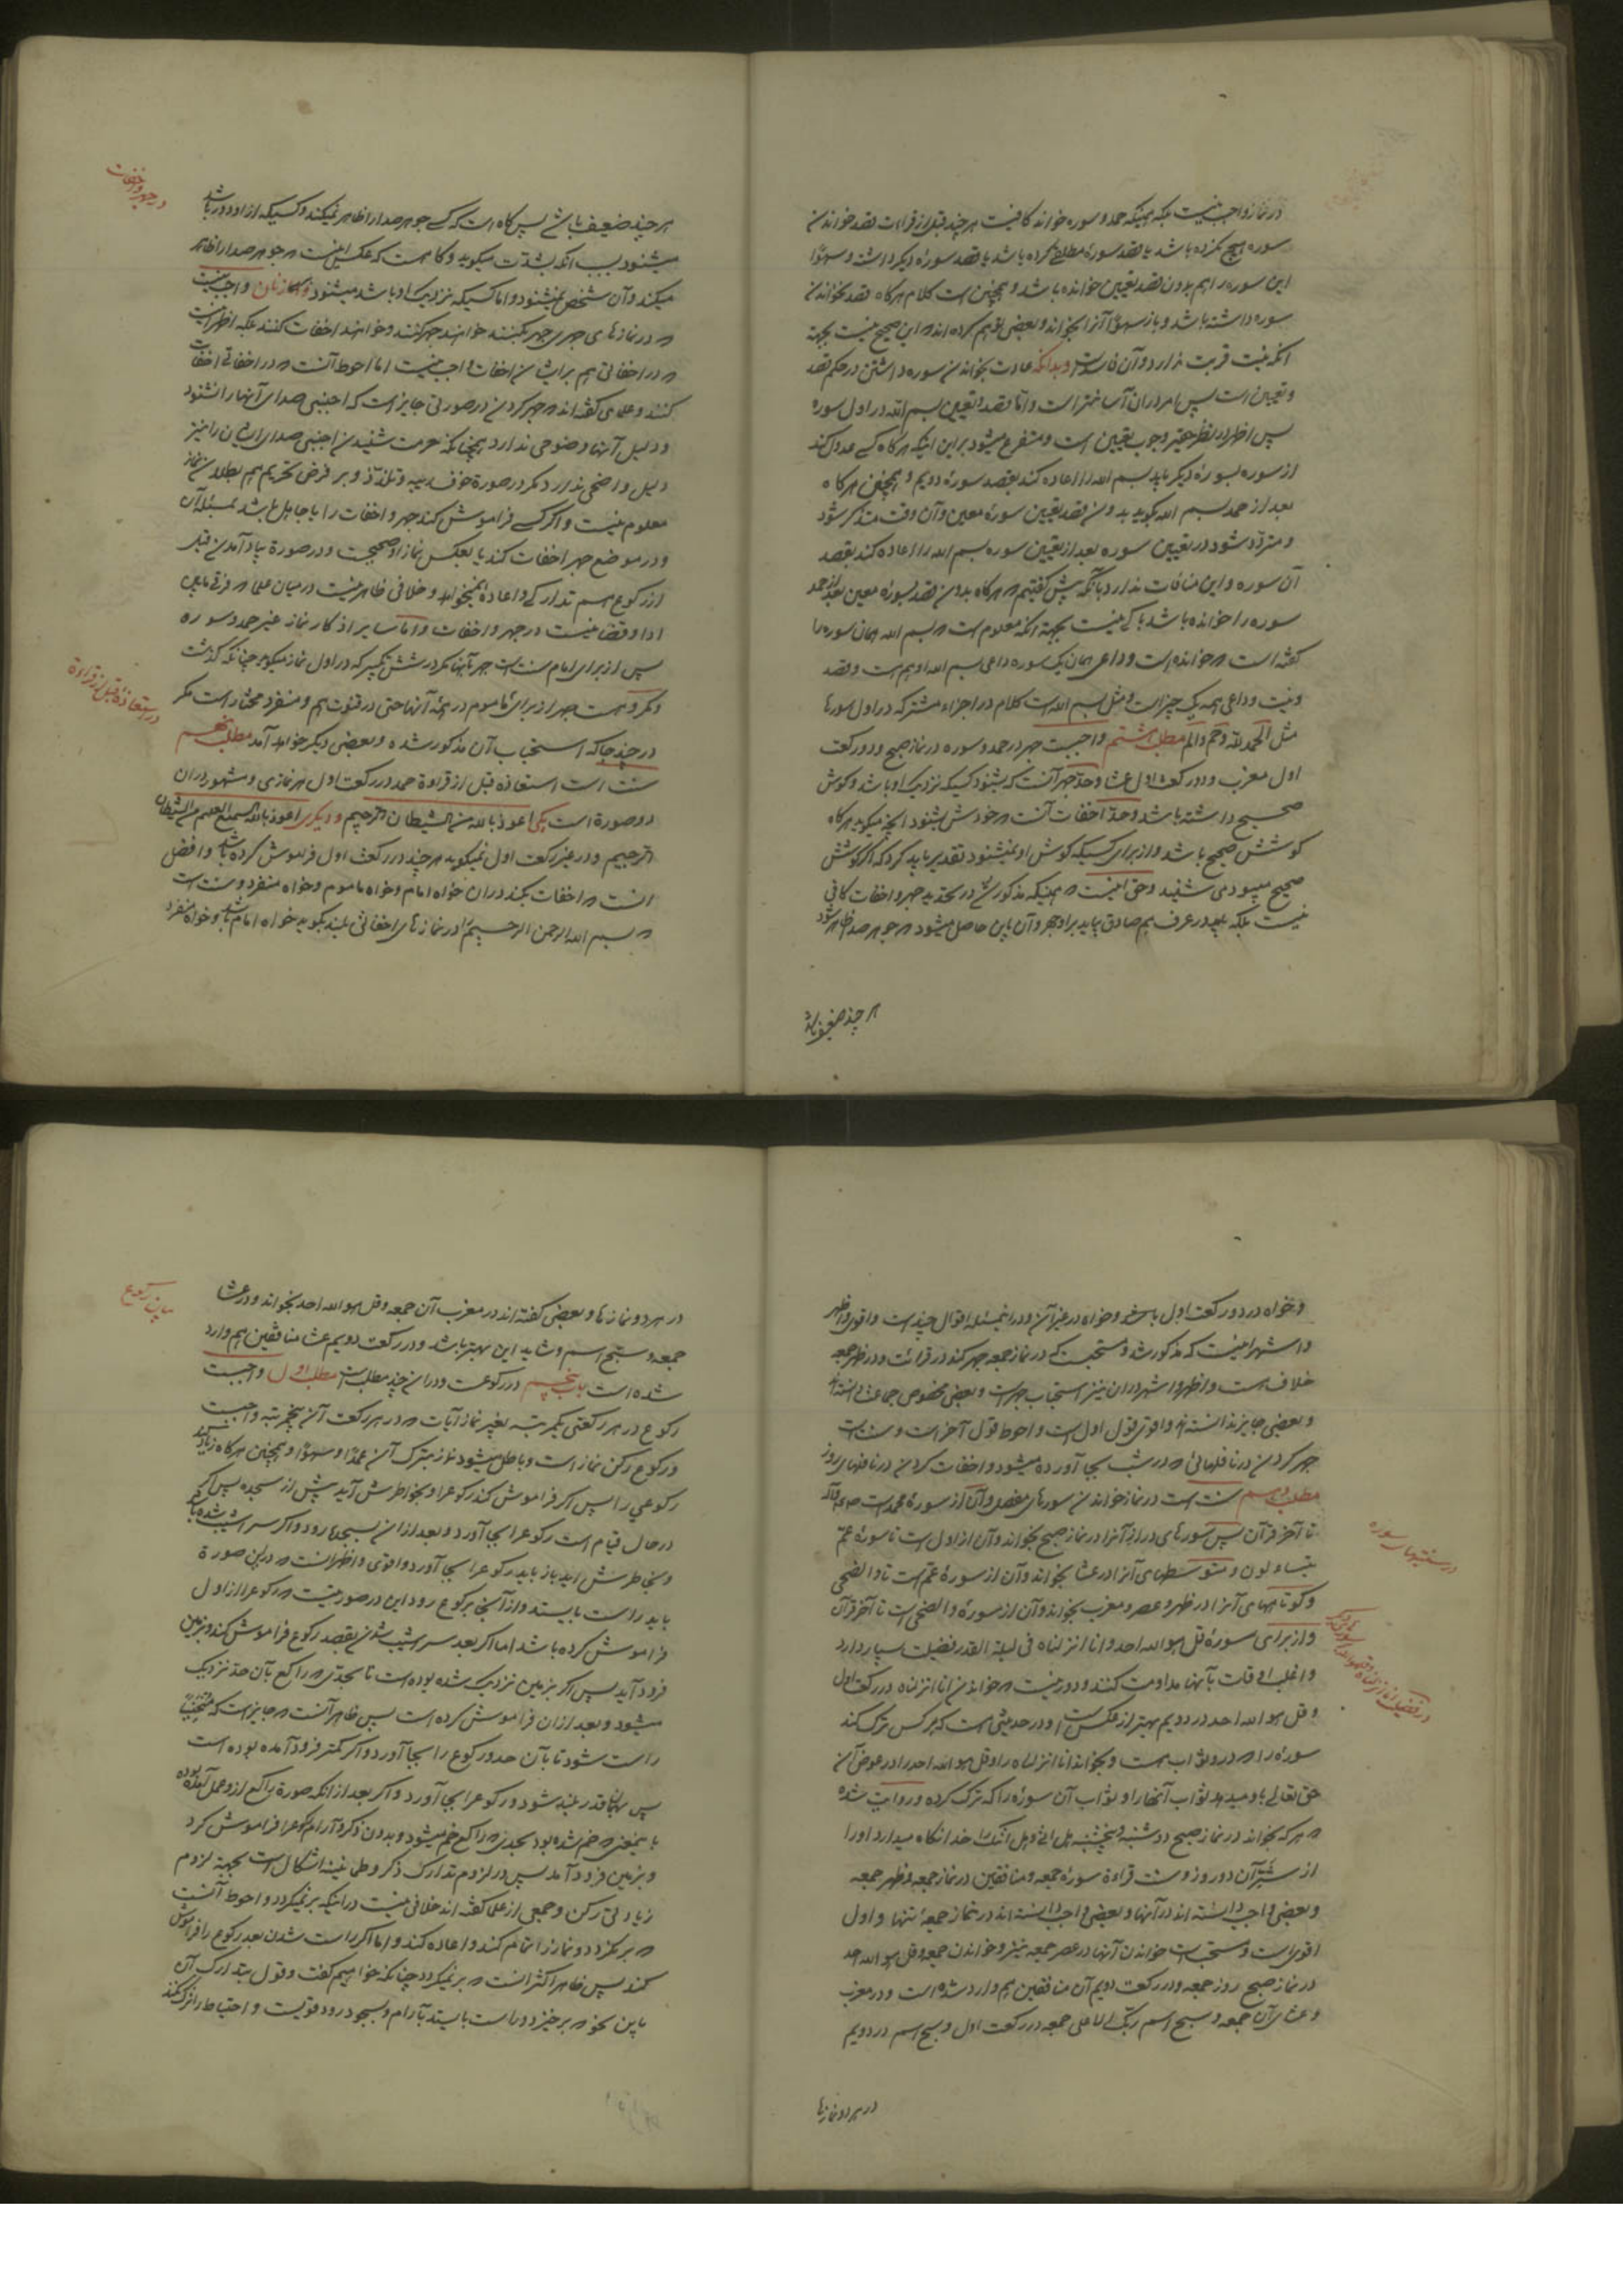 در نماز واجب نیست بلکه همینکه حمد و سوره خواند کافیست هر چند قبل از قراءت قصد خواندن
سوره هیچ نکرده باشد یا قصد سورهٔ مطلق کرده باشد یا قصد سورهٔ دیکر داشت و سهوًا
این سوره را هم بدون قصد تعیین خوانده باشد و همچنین است کلام هرکاه قصد نخواندن
سوره داشته باشد و باز سهوًا آنرا بخواند و بعضی توهم کرده اند که این صحیح نیست بجهة
انکه نیت قربت ندارد و آن فاسد است و بدانکه عادت بخواندن سوره داشتن در حکم قصد
و تعیین است پس امر در آن آسانتر است و اما قصد و تعیین بسم الله در اول سوره
پس اظهر در نظر حقیر وجوب تعیین است و متفرع میشود بر این اینکه هرکاه کسی عدول کند
از سوره بسورهٔ دیکر باید بسم الله را اعاده کند بقصد سورهٔ دویم و همچنین هرکاه
بعد از حمد بسم الله بکوید بدون قصد تعیین سورهٔ معین و آن وقت متذکر شود
و متردد شود در تعیین سوره بعد از تعیین سوره بسم الله را اعاده کند بقصد
آن سوره و این منافات ندارد با آنکه پیش کفتیم که هرکاه بدون قصد سورهٔ معین بعد از حمد
سوره را خوانده باشد باکی نیست بجهة انکه معلوم است که بسم الله همان سوره را
کفته است که خوانده است و داعی همان یک سوره داعی بسم الله او هم است و قصد
و نیت و داعی همه یک چیز است و مثل بسم الله است کلام در اجزاء مشترکه در اول سورها
مثل الحمد لله و حم و الم مطلب هشتم واجبست جهر در حمد و سوره در نماز صبح و دو رکعت
اول مغرب و دو رکعت اول عشا و حد جهر آنست که بشنود کسیکه نزدیک او باشد و کوش
صحیح داشته باشد و حد اخفات آنست که خودش بشنود انچه میکوید هرکاه
کوشش صحیح باشد و از برای کسیکه کوش او نمیشنود تقدیر باید کرد که اکر کوشش
صحیح میبود می شنید و حق اینست که همینکه مذکور شد در تحدید جهر و اخفات کافی
نیست بلکه باید در عرف هم صادق بیاید بر او جهر و آن باین حاصل میشود که جوهر صدا ظاهر شود
هر چند ضعیف باشد
در جهر و اخفات
هر چند ضعیف باشد پس کاه است که کسی جوهر صدا را ظاهر نمیکند و کسیکه از او دور باشد
میشنود بسبب انکه بشدت میکوید و کاهست که عکس اینست که جوهر صدا را ظاهر
میکند و آن شخص نمیشنود و اما کسیکه نزدیک او باشد میشنود و اما زنان واجب نیست
که در نمازهای جهری جهر بکنند خواهند جهر کنند و خواهند اخفات کنند بلکه اظهر اینست
که در اخفاتی هم بر ایشان اخفات واجب نیست اما احوط آنست که در اخفاتی اخفات
کنند و علما کفته اند که جهر کردن در صورتی جایز است که اجنبی صدای آنها را نشنود
و دلیل آنها وضوحی ندارد همچنانکه حرمت شنیدن اجنبی صدای ایشان را نیز
دلیل واضحی ندارد مکر در صورة خوف ریبه و تلذذ و بر فرض تحریم هم بطلان نماز
معلوم نیست و اکر کسی فراموش کند جهر و اخفات را یا جاهل باشد بمسئلهٔ آن
و در موضع جهر اخفات کند یا بعکس نماز او صحیحست و در صورة بیاد آمدن قبل
از رکوع هم تدارکی و اعادهٔ نمیخواهد و خلافی ظاهر نیست در میان علما که فرق مابین
ادا و قضا نیست در جهر و اخفات و اما سایر اذکار نماز غیر حمد و سوره
پس از برای امام سنت است جهر بآنها مکر در شش تکبیر که در اول نماز میکوید چنانکه کذشت
و مکروهست جهر از برای مأموم در همهٔ آنها حتی در قنوت هم و منفرد مختار است مکر
در چند جا که استحباب آن مذکور شده و بعضی دیکر خواهد آمد مطلب نهم
در استعاذه قبل از قراءة
سنت است استعاذه قبل از قراءة حمد در رکعت اول هر نمازی و مشهور در آن
دو صورة است یکی اعوذ بالله من الشیطان الرجیم و دیکری اعوذ بالله السمیع العلیم من الشیطان
الرجیم و در غیر رکعت اول نمیکوید هر چند در رکعت اول فراموش کرده باشد و افضل
انست که اخفات بکند در آن خواه امام و خواه ماموم و خواه منفرد و سنت است
که بسم الله الرحمن الرحیم را در نمازهای اخفاتی بلند بکوید خواه امام باشد و خواه منفرد
و خواه در دو رکعت اول باشد و خواه در غیر آن و در اینمسئله اقوال چند است و اقوی و اظهر
و اشهر اینست که مذکور شد و مستحبست که در نماز جمعه جهر کند در قرائت و در ظهر جمعه
خلاف است و اظهر و اشهر در آن نیز استحباب جهر است و بعضی مخصوص جماعت دانسته اند
و بعضی جایز ندانسته اند و اقوی قول اول است و احوط قول آخر است و سنت است
جهر کردن در نافلهائی که در شب بجا آورده میشود و اخفات کردن در نافلهای روز
مطلب دهم سنت است در نماز خواندن سورهای مفصل و آن از سورهٔ محمد است صلی الله علیه و آله
تا آخر قرآن پس سورهای دراز آنرا در نماز صبح بخواند و آن از اول است تا سورهٔ عم
در سنتیهای سوره
یتساءلون و متوسطهای آنرا در عشا بخواند و آن از سورهٔ عم است تا والضحی
و کوتاههای آنرا در ظهر و عصر و مغرب بخواند و آن از سورهٔ والضحی است تا آخر قرآن
و از برای سورهٔ قل هو الله احد و انا انزلناه فی لیلة القدر فضیلت بسیار دارد
و اغلب اوقات بآنها مداومت کنند و دور نیست که خواندن انا انزلناه در رکعت اول
و قل هو الله احد در دویم بهتر از عکس است و در حدیثی است که هر کس ترک کند
سورهٔ را که در و ثواب هست و بخواند انا انزلناه را و قل هو الله احد را در عوض آن
حق تعالی باو میدهد ثواب آنها را و ثواب آن سورهٔ را که ترک کرده و روایت شده
که هر که بخواند در نماز صبح دوشنبه و پنجشنبه هل اتی و هل اتیک را خدا نکاه میدارد او را
از شر آن دو روز و سنت قراءة سورهٔ جمعه و منافقین در نماز جمعه و ظهر جمعه
و بعضی واجب دانسته اند در آنها و بعضی واجب دانسته اند در نماز جمعهٔ تنها و اول
اقوی است و مستحب است خواندن آنها در عصر جمعه نیز و خواندن جمعه و قل هو الله احد
در نماز صبح روز جمعه و در رکعت دویم آن منافقین هم وارد شده است و در مغرب
و عشای آن جمعه و سبح اسم ربک الاعلی جمعه در رکعت اول و سبح اسم در دویم
در هر دو نمازها
بیان رکوع
در هر دو نمازها و بعضی کفته اند در مغرب آن جمعه و قل هو الله احد بخواند و در عشا
جمعه و سبح اسم و شاید این بهتر باشد و در رکعت دویم عشا منافقین هم وارد
شده است باب پنجم در رکوعست و در آن چند مطلب است مطلب اول واجبست
رکوع در هر رکعتی یکمرتبه بغیر نماز آیات که در هر رکعت آن پنج مرتبه واجبست
و رکوع رکن نماز است و باطل میشود نماز بترک آن عمدًا و سهوًا و همچنین هرکاه زیاد کند
رکوعی را پس اکر فراموش کند رکوع را و بخاطرش آید پیش از سجده پس اکر
در حال قیام است رکوع را بجا آورد و بعد از آن بسجده رود و اکر سراشیب شده باشد
و بخاطرش آید باز باید رکوع را بجا آورد و اقوی و اظهر انست که درین صورة
باید راست بایستد و از آنجا برکوع رود این در صورتیست که رکوع را از اول
فراموش کرده باشد اما اکر بعد سراشیب شدن بقصد رکوع فراموش کند و بزمین
فرود آید پس اکر بزمین نزدیک شده بوده است تا بحدی که راکع بآن حد نزدیک
میشود و بعد از آن فراموش کرده است پس ظاهر آنست که جایز است که منحنیًا
راست شود تا بآن حد و رکوع را بجا آورد و اکر کمتر فرود آمده بوده است
پس بهمانقدر بلند شود و رکوع را بجا آورد و اکر بعد از انکه صورة راکع از و بعمل آمده بوده
باینمعنی که خم شده بود بحدی که راکع خم میشود و بدون ذکر و آرام رکوع را فراموش کرد
و بزمین فرود آمد پس در لزوم تدارک ذکر و طمانینه اشکال است بجهة لزوم
زیادتی رکن و جمعی از علما کفته اند خلافی نیست در اینکه بر نمیکردد و احوط آنست
که بر نکردد و نماز را تمام کند و اعاده کند و اما اکر راست شدن بعد رکوع را فراموش
کند پس ظاهر اکثر انست که بر نمیکردد چنانکه خواهیم کفت و قول بتدارک آن
باین نحو که برخیزد و راست بایستد بآرام و بسجود رود قویست و احتیاط را ترک نکند